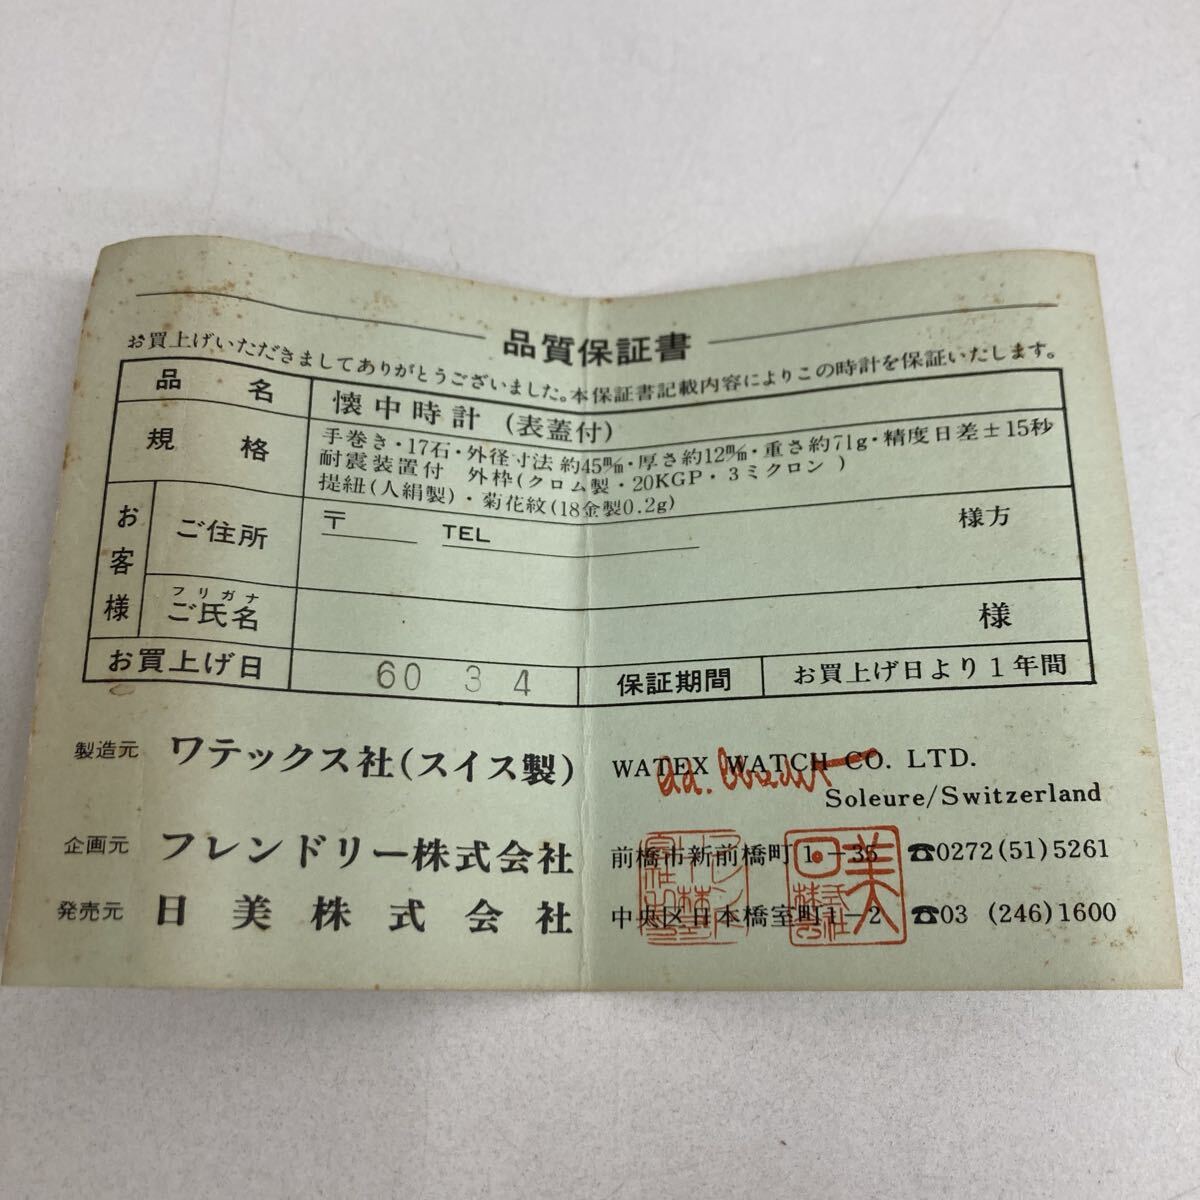 品質保証書
お買上げいただきましてありがとうございました。本保証書記載内容によりこの時計を保証いたします。
品名 懐中時計 (表蓋付)
規格 手巻き・17石・外径寸法 約45m/m・厚さ約12m/m・重さ約71g・精度日差±15秒
耐震装置付 外枠(クロム製・20KGP・3ミクロン)
提紐(人絹製)・菊花紋(18金製0.2g)
お客様 ご住所 〒 TEL 様方
フリガナ
ご氏名 様
お買上げ日 60 3 4 保証期間 お買上げ日より1年間
製造元 ワテックス社(スイス製) WATEX WATCH CO. LTD.
Soleure/Switzerland
企画元 フレンドリー株式会社 前橋市新前橋町1-35 ☎0272(51)5261
発売元 日美株式会社 中央区日本橋室町1-2 ☎03 (246)1600
日美株式会社